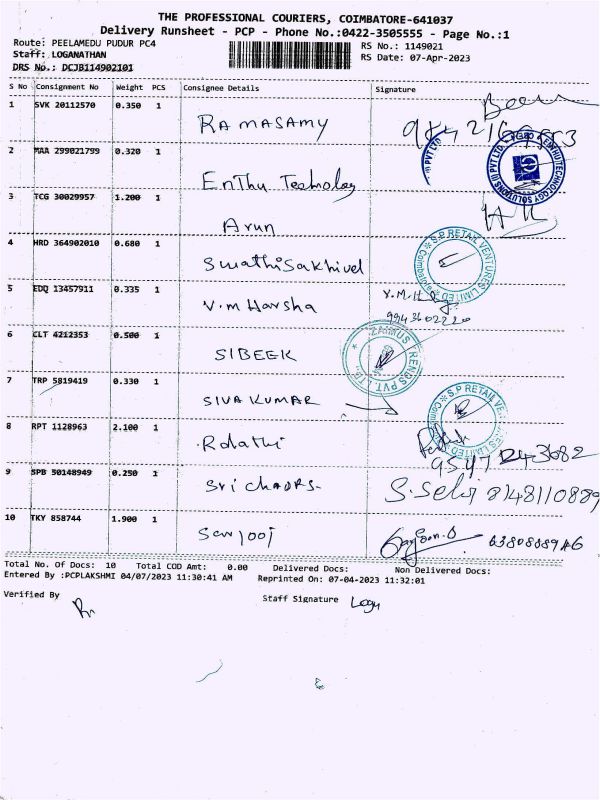 THE PROFESSIONAL COURIERS, COIMBATORE-641037
Delivery Runsheet - PCP - Phone No.:0422-3505555 - Page No.:1
Route: PEELAMEDU PUDUR PC4
RS No.: 1149021
Staff: LOGANATHAN
RS Date: 07-Apr-2023
DRS No.: DCJB114902101
S No Consignment No Weight PCS Consignee Details Signature
1 SVK 20112570 0.350 1
RAMASAMY
2 MAA 299021799 0.320 1
EnThu Technology
3 TCG 30029957 1.200 1
Arun
4 HRD 364902010 0.680 1
SwathiSakhivel
S.P RETAIL VENTURES LIMITED Coimbatore
5 EDQ 13457911 0.335 1
V.M Harsha
V.M.H
9943602220
6 CLT 4212353 0.500 1
SIBEEK
TRENDS PVT. LTD.
7 TRP 5819419 0.330 1
SIVA KUMAR
S.P RETAIL VENTURES LIMITED
8 RPT 1128963 2.100 1
9 SPB 50148949 0.250 1
Sri
S. Selvi 8148110889
10 TKY 858744 1.900 1
Total No. Of Docs: 10 Total COD Amt: 0.00 Delivered Docs: Non Delivered Docs:
Entered By :PCPLAKSHMI 04/07/2023 11:30:41 AM Reprinted On: 07-04-2023 11:32:01
Verified By
Staff Signature Logu